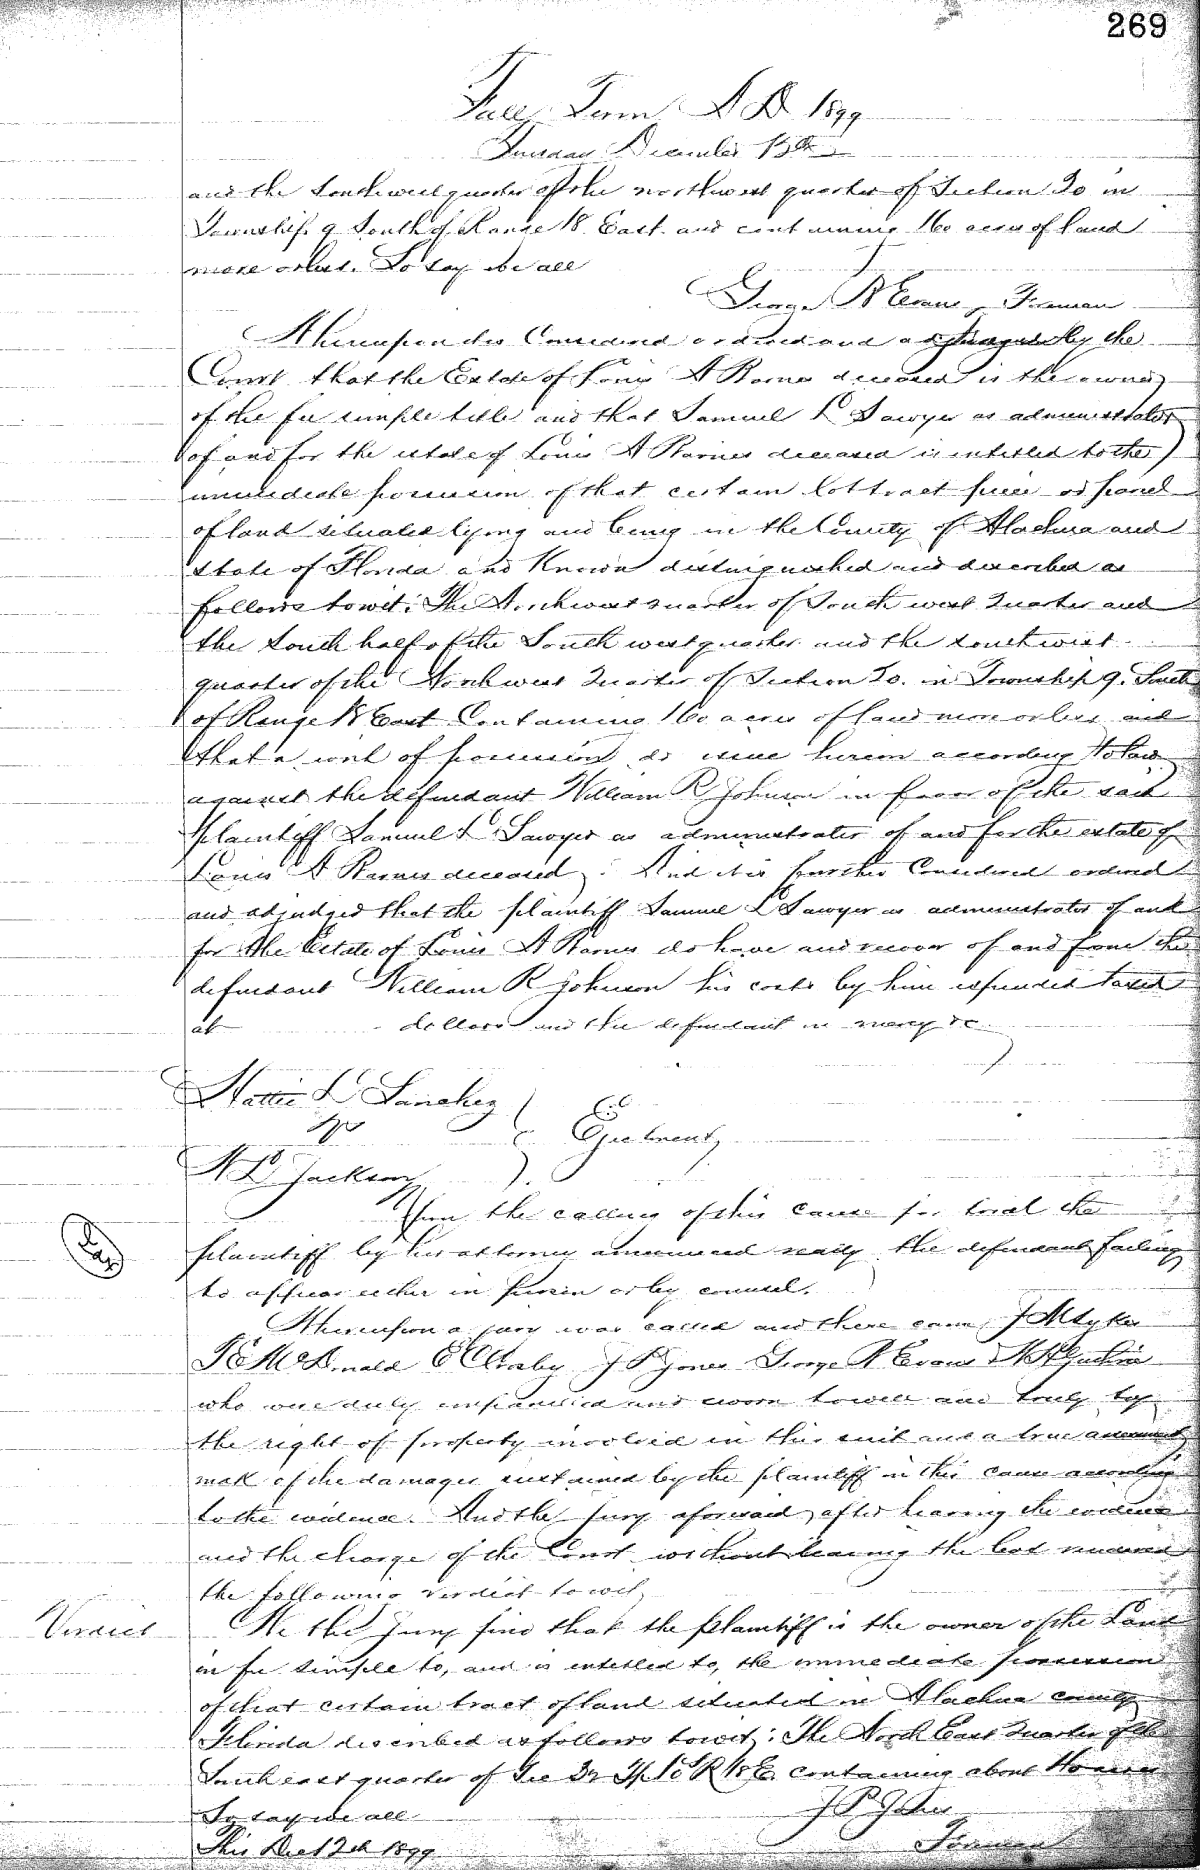 269
Fall Term A.D. 1899
Tuesday December 13th
and the Southwest quarter of the northwest quarter of Section 20 in
Township 9 South of Range 18 East and containing 160 acres of land
more or less. So say we all
George R Evans, Foreman
Whereupon it is Considered ordered and adjudged by the
Court that the Estate of Louis A Barnes deceased is the owner
of the fee simple title and that Samuel L Sawyer as administrator
of and for the estate of Louis A Barnes deceased is entitled to the
immediate possession of that certain lot tract piece or parcel
of land situated lying and being in the County of Alachua and
State of Florida and Known distinguished and described as
follows towit: The Northwest quarter of South west Quarter and
the South half of the South west quarter and the southwest
quarter of the Northwest Quarter of Section 20. in Township 9. South
of Range 18 East Containing 160 acres of land more or less and
that a writ of possession do issue herein according to law
against the defendant William R Johnson in favor of the said
plaintiff Samuel L. Sawyer as administrator of and for the estate of
Louis A Barnes deceased. And it is further Considered ordered
and adjudged that the plaintiff Samuel L Sawyer as administrator of and
for the Estate of Louis A Barnes do have and recover of and from the
defendant William R Johnson his costs by him expended taxed
at dollars and the defendant in mercy &c
Hattie L Sanchez
vs Ejectment
N L Jackson
Upon the calling of this cause for trial the
plaintiff by her attorney announced ready the defendant failing
to appear either in person or by counsel.
Whereupon a jury was called and there came J M Syker
McDonald J P Jones George R Evans
who were duly empanelled and sworn to well and truly try
the right of property involved in this suit and a true assessment
make of the damages sustained by the plaintiff in this cause according
to the evidence. And the jury aforesaid, after hearing the evidence
and the charge of the Court without leaving the box rendered
the following verdict to wit,
Verdict We the Jury find that the plaintiff is the owner of the Land
in fee simple to, and is entitled to, the immediate possession
of that certain tract of land situated in Alachua county
Florida described as follows towit: The North East Quarter of the
South east quarter of Sec containing about
So say we all J P Jones
This Dec 12th 1899 Foreman